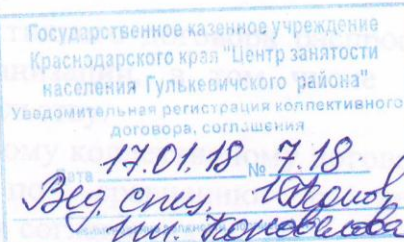 Государственное казенное учреждение
Краснодарского края "Центр занятости
населения Гулькевичского района"
Уведомительная регистрация коллективного
договора, соглашения
Дата 17.01.18 № 7.18
Вед. спец.